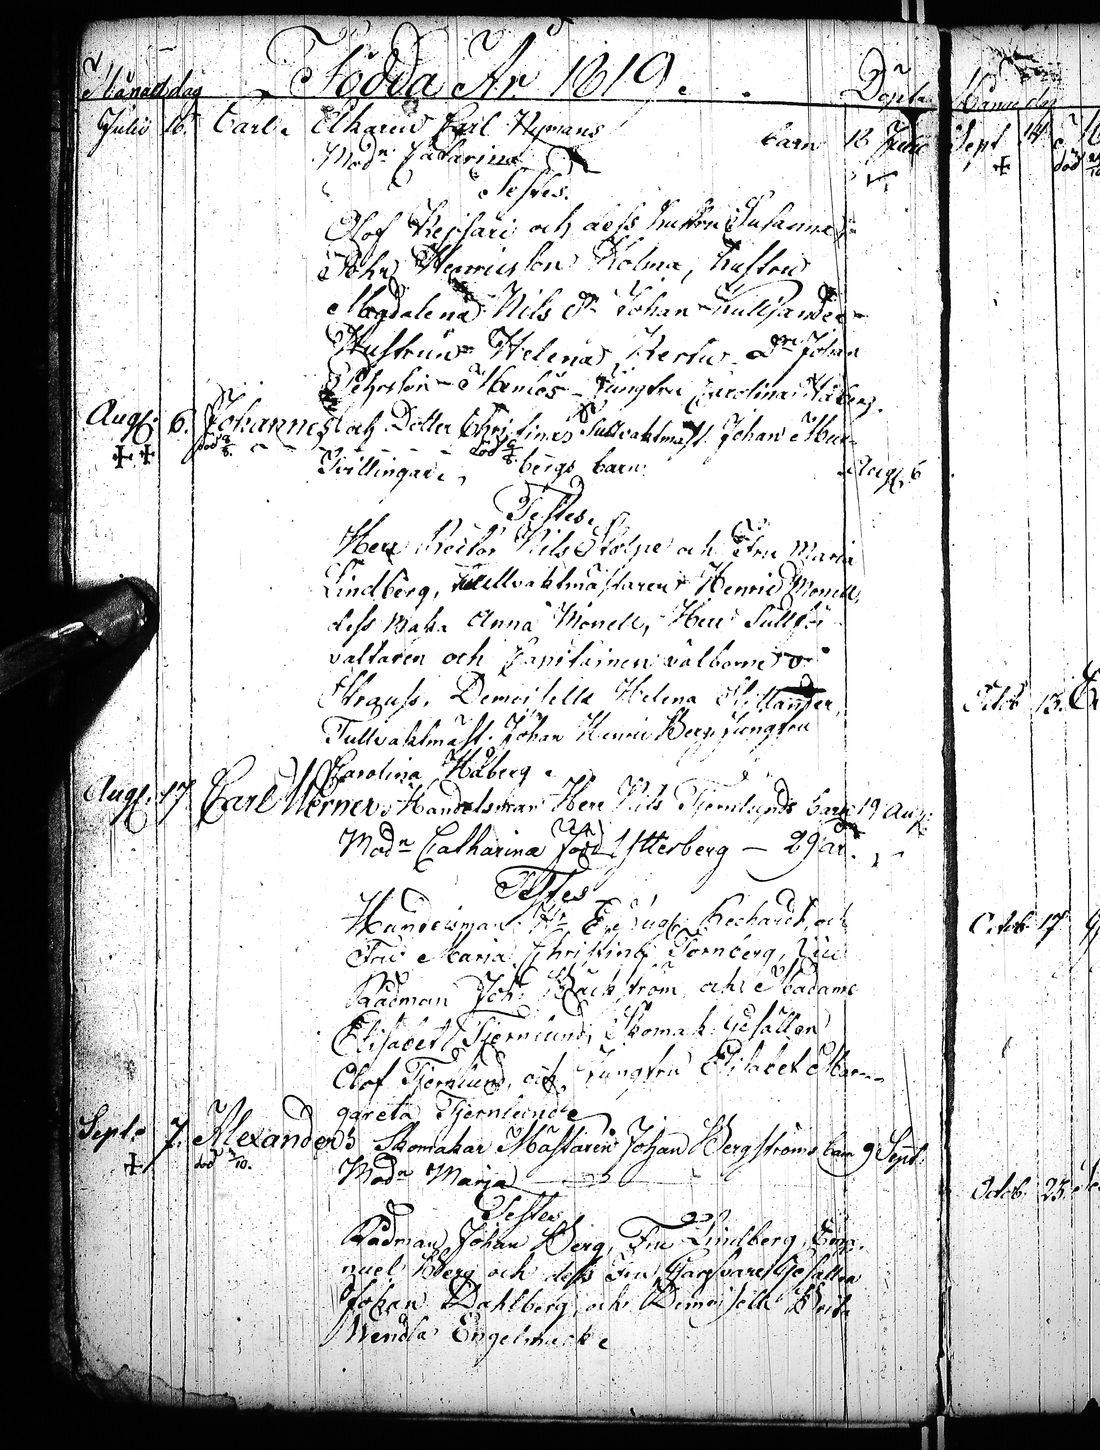 Månad dag Födda År 1819. Döpte
Julii 16. Carl. Elkaren Carl Nymans barn 18 Julii
Modr Catharina
Testes.
Olof och dess hustru Susanna
Johan Henricsson Kolma, hustru
Magdalena Nils Dr Johan
Hustrun Helena, Johan
Pehrsson Jungfru Carolina Håberg.
Augs. 6. Johannes och Dotter Christina, Tullvaktmäst. Johan Mur-
död död
Tvillingar, bergs barn. Augs. 6
Testes.
Herr Rector Nils Stolpe och Fru Maria
Lindberg, Tullvaktmästaren Henric Monell,
dess Maka Anna Monell, Herr Tullför-
valtaren och Capitainen välborne v.
Strauss, Demoiselle Helena
Tullvaktmäst. Johan Henric Berg, jungfru
Carolina Håberg.
Augs. 17 Carl Werner, Handelsman Herr Nils Tjernlunds barn 19 Aug:
Modr Catharina född Ytterberg — 29 år.
Testes
Handelsman Hr och
Fru Maria Christina Tornberg,
Rådman Joh: Bäckström och Madame
Elisabet Tjernlund, Skomak. Gesällen
Olof Tjernlund, och Jungfru Elisabet Mar-
gareta Tjernlund
Sept. 7. Alexander Skomakar Mästaren Johan Bergströms barn 9 Sept:
död /10.
Modr Maria
Testes
Rådman Johan Berg, Fru Lindberg, Ema-
nuel Berg och dess Fru, Garfvare Gesällen
Johan Dahlberg och Demoiselle Brita
Wendla Engelmark
Månad dag
Sept 14
död
Octob 13.
Octob. 17
Octob. 23.